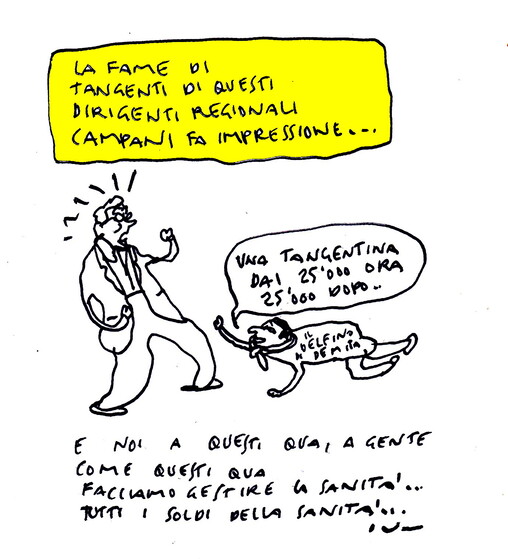 LA FAME DI
TANGENTI DI QUESTI
DIRIGENTI REGIONALI
CAMPANI FA IMPRESSIONE...
UNA TANGENTINA
DAI 25'000 ORA
25'000 DOPO..
IL
DELFINO
DI DE MITA
E NOI A QUESTI QUA, A GENTE
COME QUESTI QUA
FACCIAMO GESTIRE LA SANITA'...
TUTTI I SOLDI DELLA SANITA'...